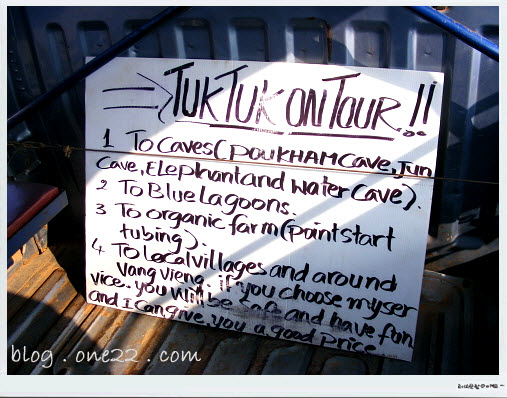 TUKTUK ON TOUR !!
1 To Caves (POUKHAM Cave, Jun
Cave, Elephant and Water Cave).
2 To Blue Lagoons.
3 To organic farm (Point start
tubing).
4 To Local villages and around
Vang vieng. if you choose myser
vice. you will be safe and have fun
and I can give. you a good price
blog . one22 . com